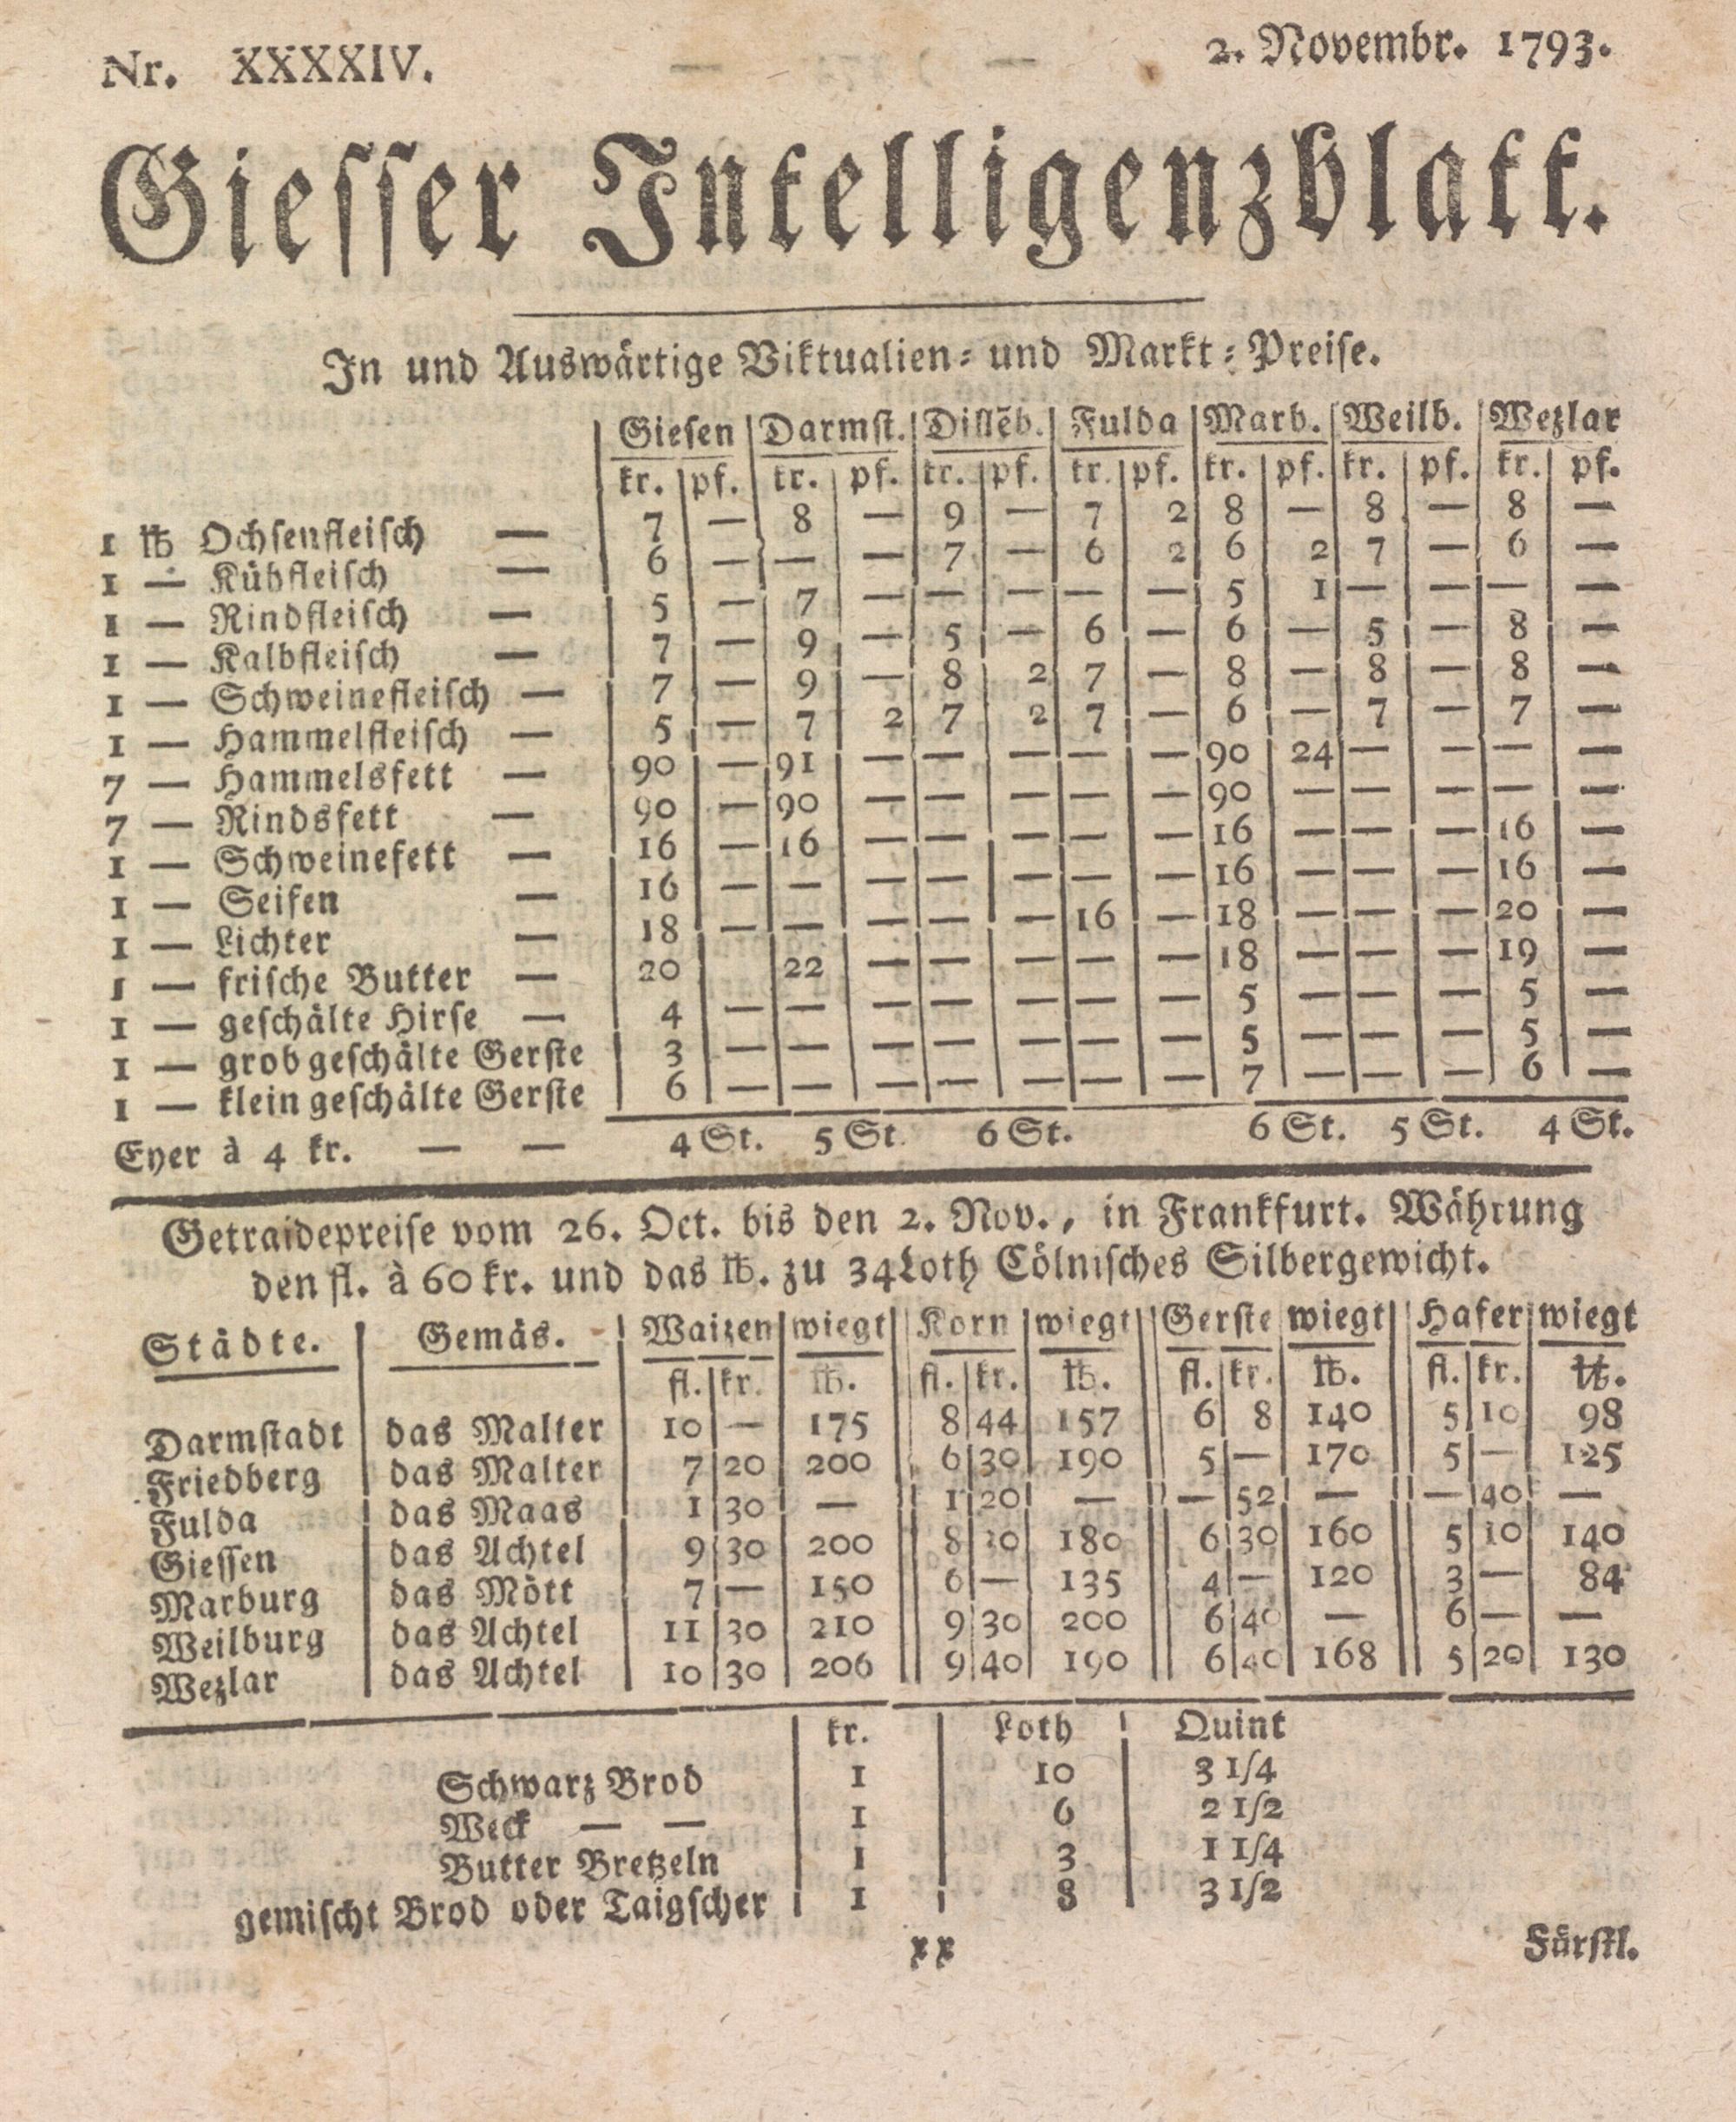 Nr. XXXXIV. 2. Novembr. 1793.
Giesser Intelligenzblatt.
In und Auswärtige Viktualien- und Markt-Preise.
Giesen Darmst. Dillēb. Fulda Marb. Weilb. Wezlar
kr. pf. kr. pf. kr. pf. kr. pf. kr. pf. kr. pf. kr. pf.
1 ℔ Ochsenfleisch — 7 — 8 — 9 — 7 2 8 — 8 — 8 —
1 — Kühfleisch — 6 — — — 7 — 6 2 6 2 7 — 6 —
1 — Rindfleisch — 5 — 7 — — — — — 5 1 — — — —
1 — Kalbfleisch — 7 — 9 — 5 — 6 — 6 — 5 — 8 —
1 — Schweinefleisch — 7 — 9 — 8 2 7 — 8 — 8 — 8 —
1 — Hammelfleisch — 5 — 7 2 7 2 7 — 6 — 7 — 7 —
7 — Hammelsfett — 90 — 91 — — — — — 90 24 — — — —
7 — Rindsfett — 90 — 90 — — — — — 90 — — — — —
1 — Schweinefett — 16 — 16 — — — — — 16 — — — 16 —
1 — Seifen — 16 — — — — — — — 16 — — — 16 —
1 — Lichter — 18 — — — — — 16 — 18 — — — 20 —
1 — frische Butter — 20 22 — — — — — 18 — — — 19 —
1 — geschälte Hirse — 4 — — — — — — — 5 — — — 5 —
1 — grob geschälte Gerste 3 — — — — — — — 5 — — — 5 —
1 — klein geschälte Gerste 6 — — — — — — — 7 — — — 6 —
Eyer à 4 kr. — — 4 St. 5 St. 6 St. 6 St. 5 St. 4 St.
Getraidepreise vom 26. Oct. bis den 2. Nov., in Frankfurt. Währung
den fl. à 60 kr. und das ℔. zu 34 Loth Cölnisches Silbergewicht.
Städte. Gemäs. Waizen wiegt Korn wiegt Gerste wiegt Hafer wiegt
fl. kr. ℔. fl. kr. ℔. fl. kr. ℔. fl. kr. ℔.
Darmstadt das Malter 10 — 175 8 44 157 6 8 140 5 10 98
Friedberg das Malter 7 20 200 6 30 190 5 — 170 5 — 125
Fulda das Maas 1 30 — 1 20 — — 52 — — 40 —
Giessen das Achtel 9 30 200 8 180 6 30 160 5 10 140
Marburg das Mött 7 — 150 6 — 135 4 — 120 3 — 84
Weilburg das Achtel 11 30 210 9 30 200 6 40 — 6 — —
Wezlar das Achtel 10 30 206 9 40 190 6 40 168 5 20 130
kr. Loth Quint
Schwarz Brod 1 10 3 1/4
Weck — — 1 6 2 1/2
Butter Bretzeln 1 3 1 1/4
gemischt Brod oder Taigscher 1 8 3 1/2
xx Fürstl.